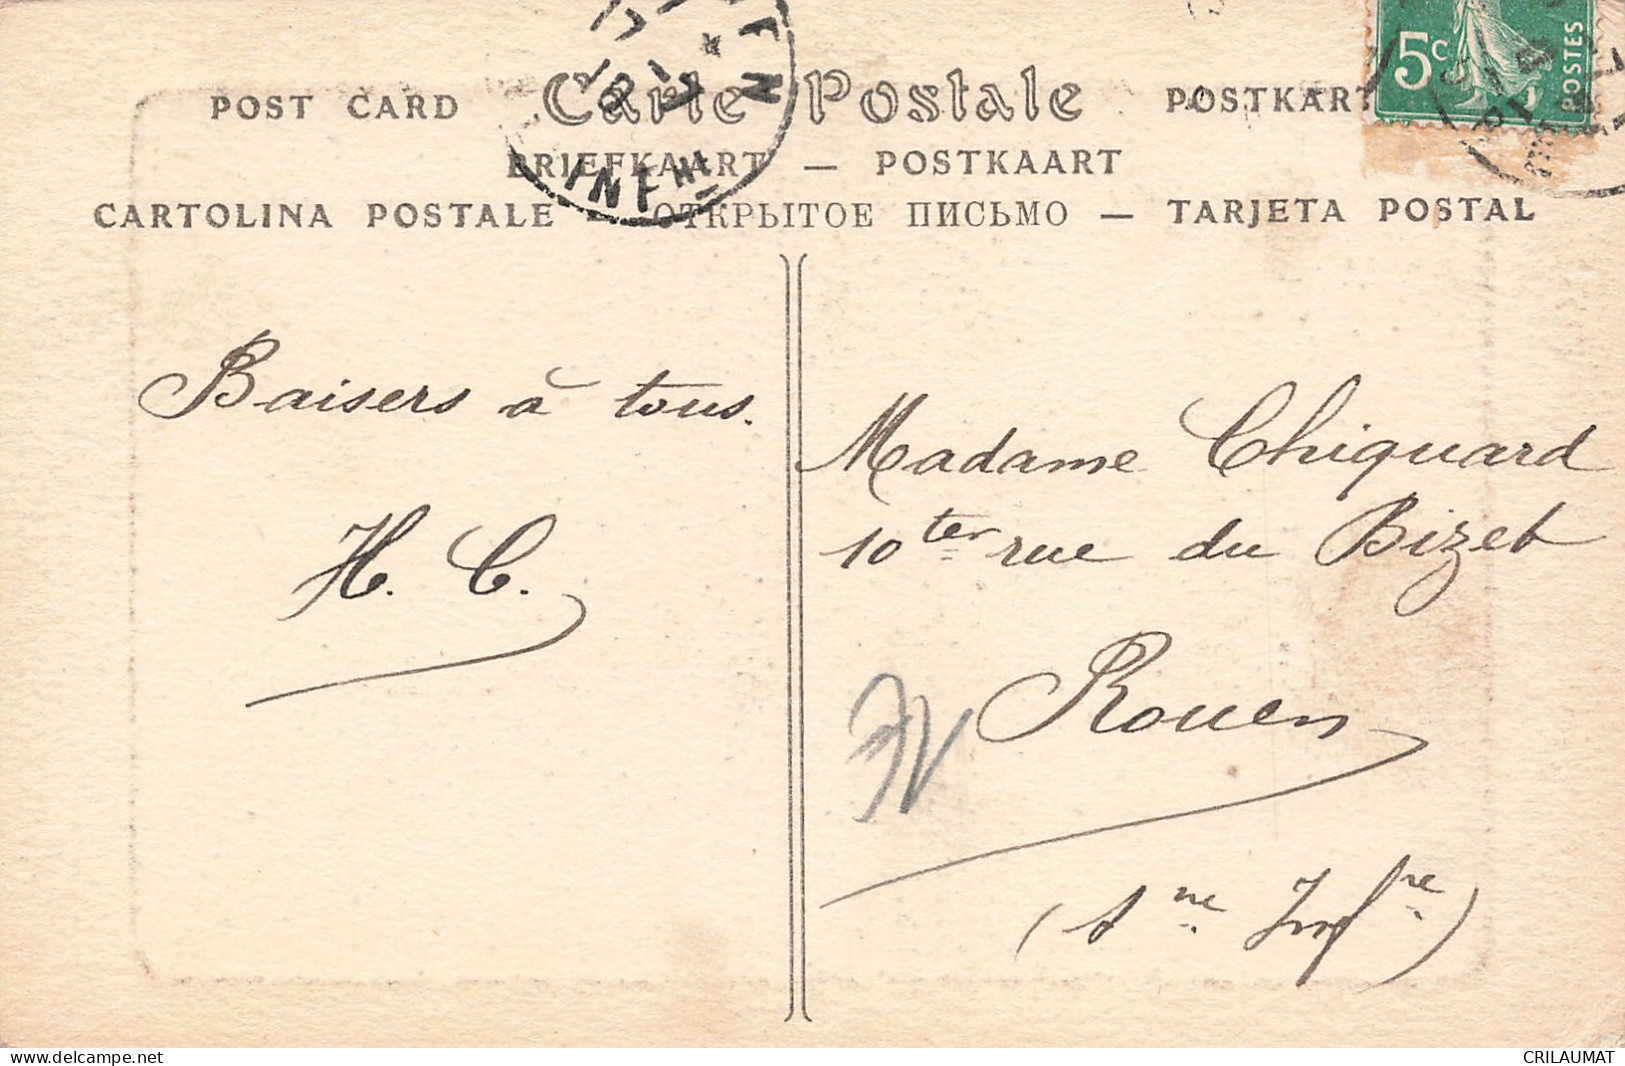 POST CARD Carte Postale POSTKART
BRIEFKAART — POSTKAART
CARTOLINA POSTALE — ОТКРЫТОЕ ПИСЬМО — TARJETA POSTAL
5c
POSTES
INFRE
Baisers à tous.
H. C.
Madame Chiquard
10ter rue du Bizet
Rouen
(Sne Infre)
www.delcampe.net
CRILAUMAT